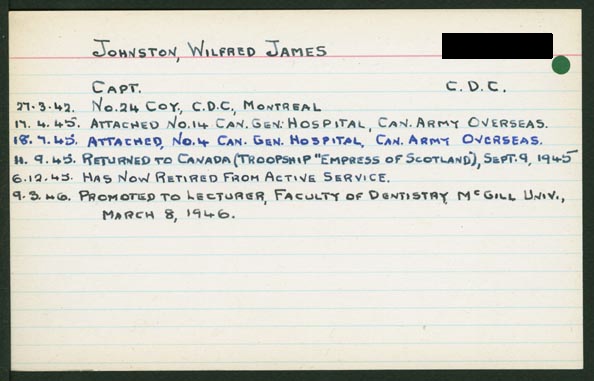 JOHNSTON, WILFRED JAMES
CAPT. C.D.C.
27.3.42. NO.24 COY., C.D.C., MONTREAL
17.4.45. ATTACHED NO.14 CAN. GEN. HOSPITAL, CAN. ARMY OVERSEAS.
18.7.45. ATTACHED, NO.4 CAN. GEN. HOSPITAL, CAN. ARMY OVERSEAS.
11.9.45. RETURNED TO CANADA (TROOPSHIP "EMPRESS OF SCOTLAND), SEPT. 9, 1945
6.12.45. HAS NOW RETIRED FROM ACTIVE SERVICE.
9.3.46. PROMOTED TO LECTURER, FACULTY OF DENTISTRY, MCGILL UNIV.,
MARCH 8, 1946.